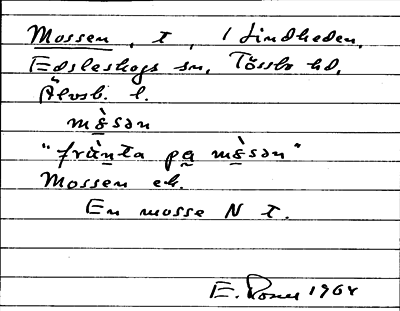 Mossen, t, i Lindheden,
Edsleskogs sn, Tössbo hd,
Älvsb. l.
mò̱sən
"frànta pa̱ mò̱sən"
Mossen ek.
En mosse N t.
E. 1968